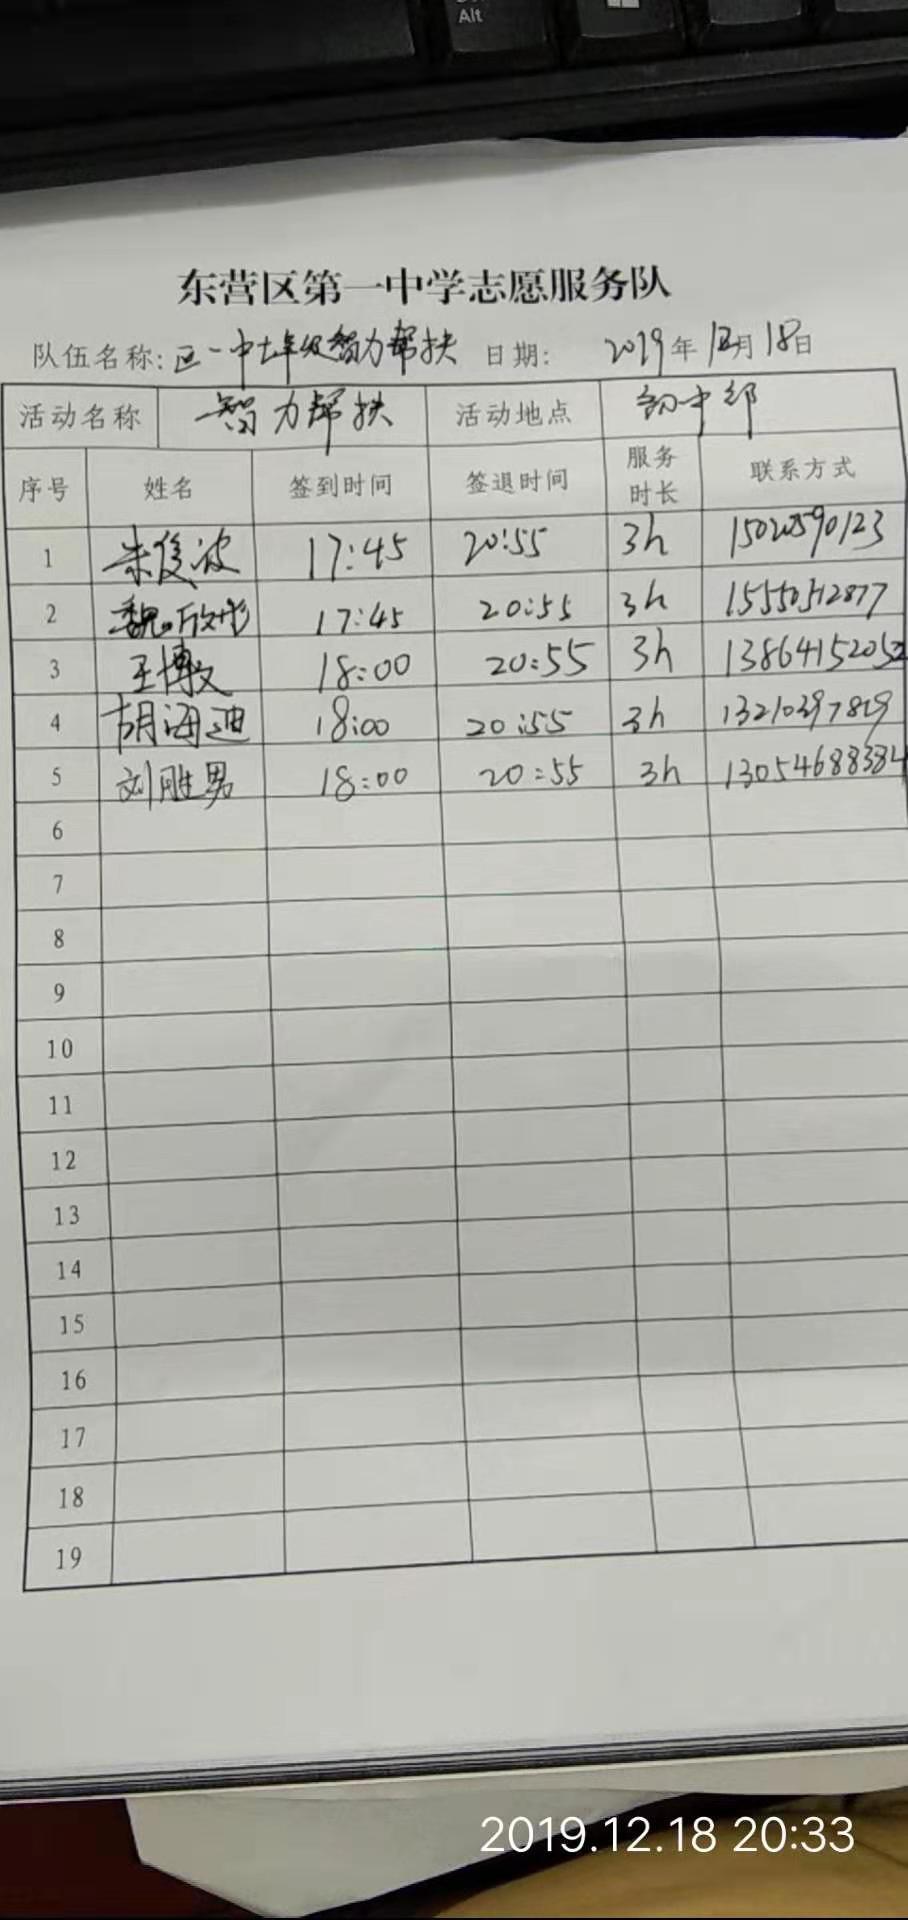 Alt
东营区第一中学志愿服务队
队伍名称:区一中七年级智力帮扶 日期: 2019年12月18日
活动名称 智力帮扶 活动地点 初中部
序号 姓名 签到时间 签退时间 服务时长 联系方式
1 朱俊波 17:45 20:55 3h 15020590123
2 魏欣彤 17:45 20:55 3h 15550512877
3 王博文 18:00 20:55 3h 1386415205
4 胡海迪 18:00 20:55 3h 13210397819
5 刘胜男 18:00 20:55 3h 13054688384
6
7
8
9
10
11
12
13
14
15
16
17
18
19
2019.12.18 20:33